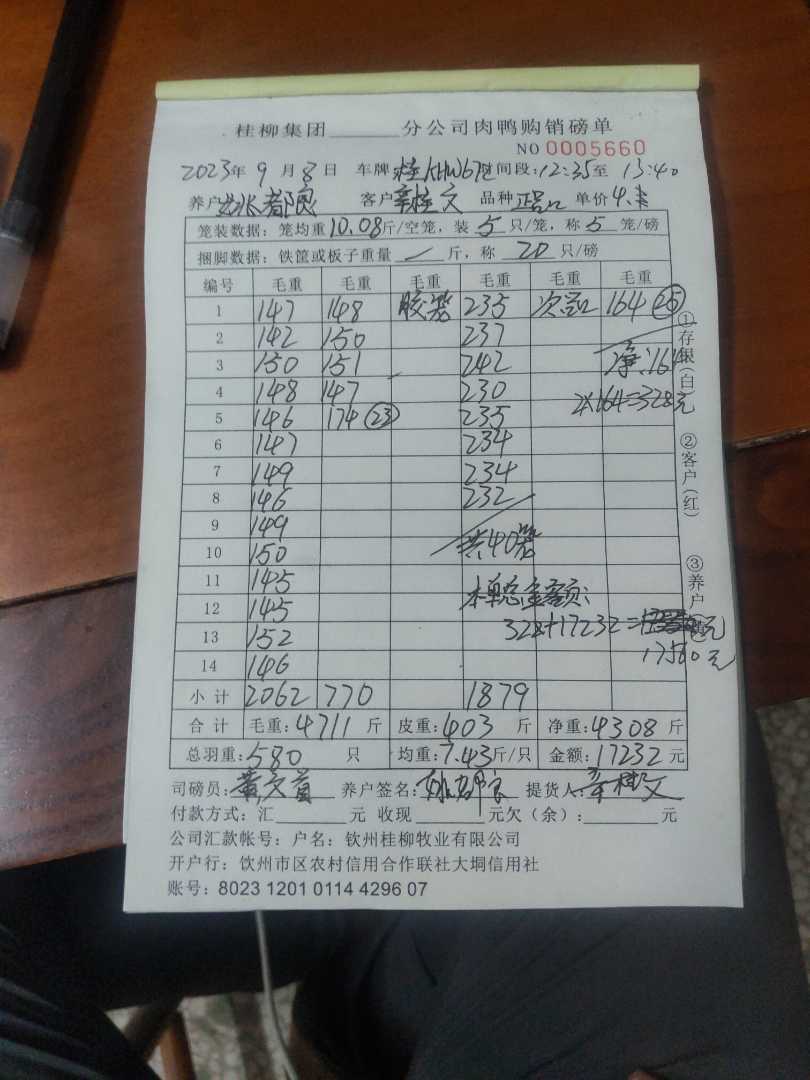 桂柳集团______分公司肉鸭购销磅单
NO 0005660
2023年 9 月 8 日 车牌:桂KHW67 时间段:12:35至 13:40
养户 姚都良 客户 辛桂文 品种 正品 单价 4.
笼装数据: 笼均重 10.08 斤/空笼, 装 5 只/笼, 称 5 笼/磅
捆脚数据: 铁筐或板子重量 / 斤, 称 20 只/磅
编号 毛重 毛重 毛重 毛重 毛重 毛重
1 147 148 胶笼 235 次品 164 (25)
2 142 150 237
3 150 151 242 净:164
4 148 147 230 2×164=328元
5 146 174 (23) 235
6 147 234
7 149 234
8 146 232
9 149
10 150 共40笼
11 145
12 145 本单总金额:
13 152 328+17232= 元
14 146 17560元
小计 2062 770 1879
合计 毛重: 4711 斤 皮重: 403 斤 净重: 4308 斤
总羽重: 580 只 均重: 7.43 斤/只 金额: 17232 元
司磅员: 养户签名: 姚都良 提货人: 辛桂文
付款方式: 汇______元 收现______元欠(余):______元
公司汇款帐号: 户名: 钦州桂柳牧业有限公司
开户行: 饮州市区农村信用合作联社大垌信用社
账号: 8023 1201 0114 4296 07
①存根(白)
②客户(红)
③养户